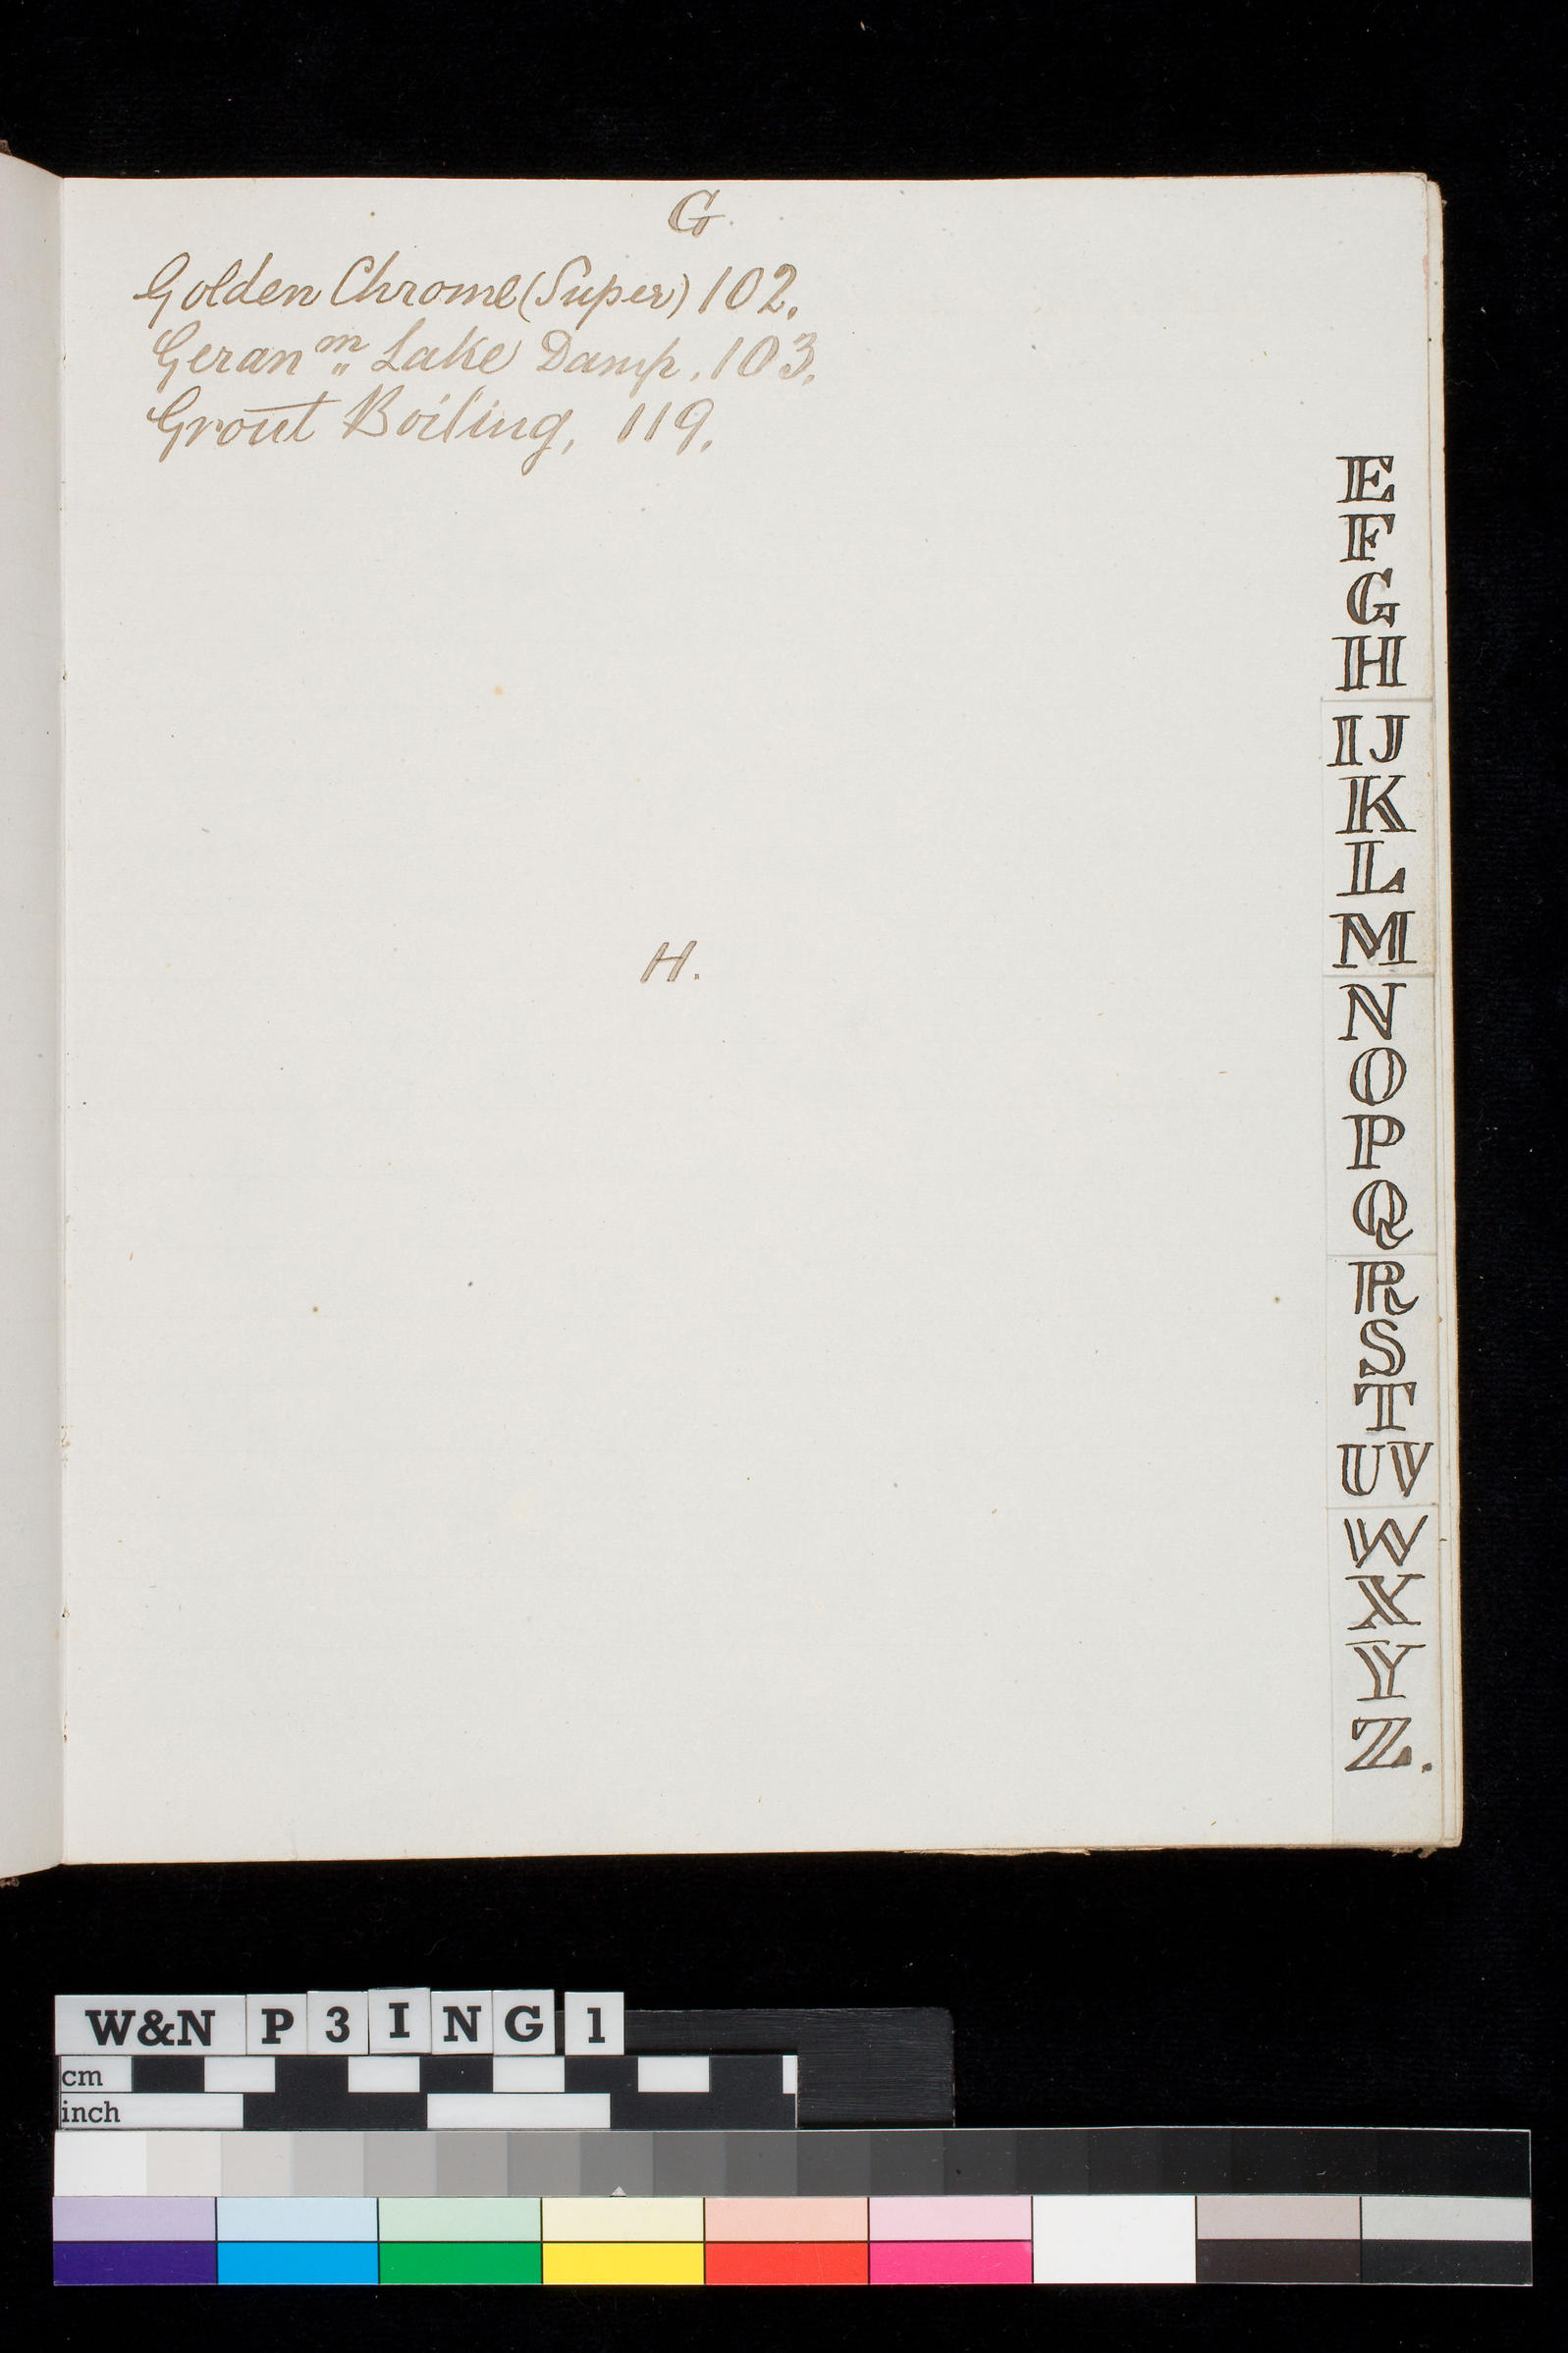 G.
Golden Chrome (Super) 102.
Geran.m Lake Damp. 103.
Grout Boiling, 119.
H.
E
F
G
H
IJ
K
L
M
N
O
P
Q
R
S
T
UV
W
X
Y
Z.
W&N P 3 I N G 1
cm
inch